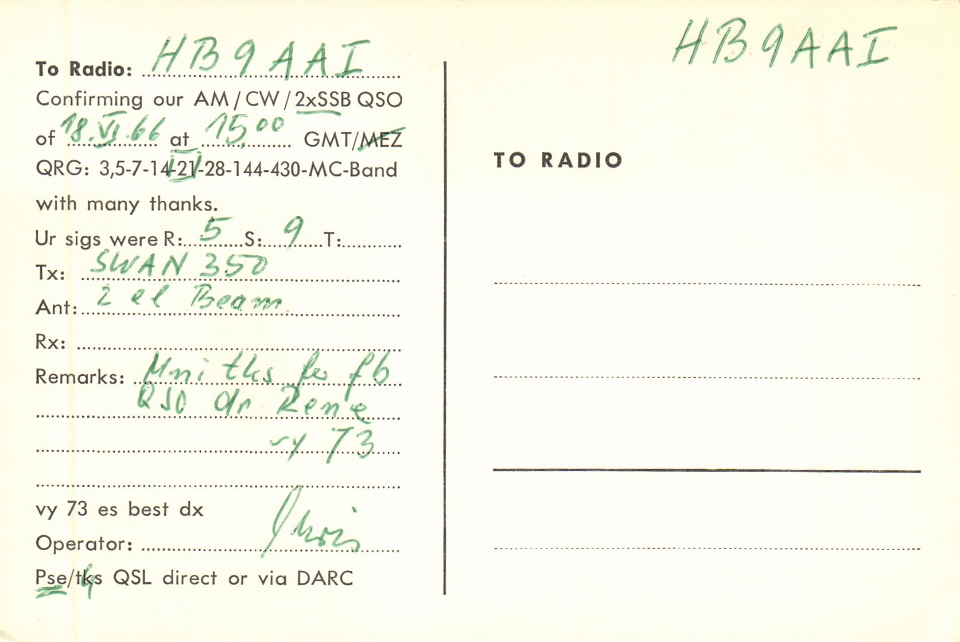 To Radio: HB9AAI
Confirming our AM/CW/2xSSB QSO
of 18.VI.66 at 15,00 GMT/MEZ
QRG: 3,5-7-14-21-28-144-430-MC-Band
with many thanks.
Ur sigs were R: 5 S: 9 T:
Tx: SWAN 350
Ant: 2 el Beam
Rx:
Remarks: Mni tks fer fb
QSO dr Rene
vy 73
vy 73 es best dx
Operator: Chris
Pse/tks QSL direct or via DARC
HB9AAI
TO RADIO